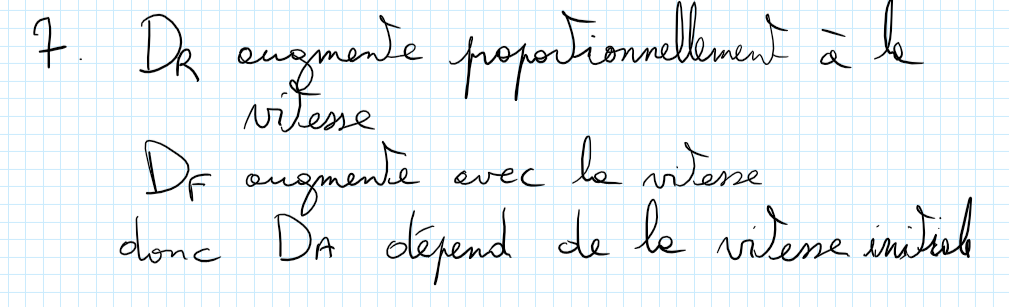 7. DR augmente propotionnellement à la
vitesse
DF augmente avec la vitesse
donc DA dépend de la vitesse initiale